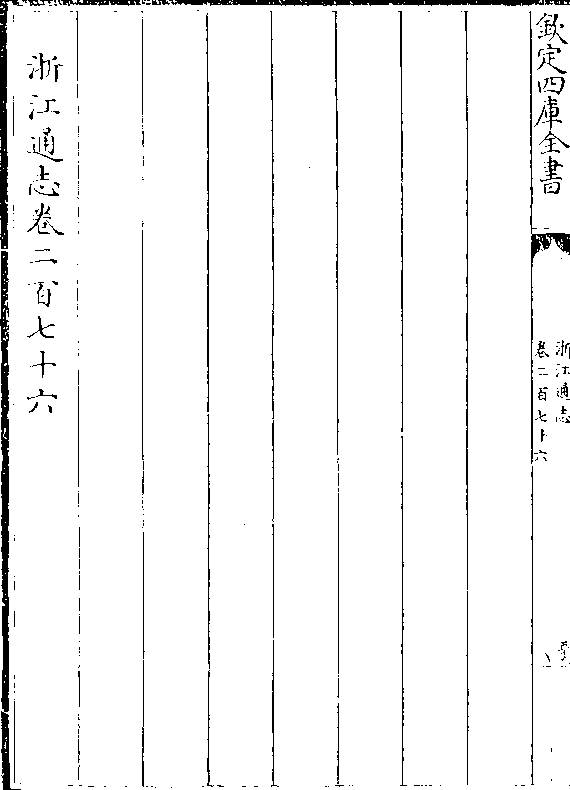 欽定四庫全書
浙江通志
卷二百七十六
浙江通志卷二百七十六